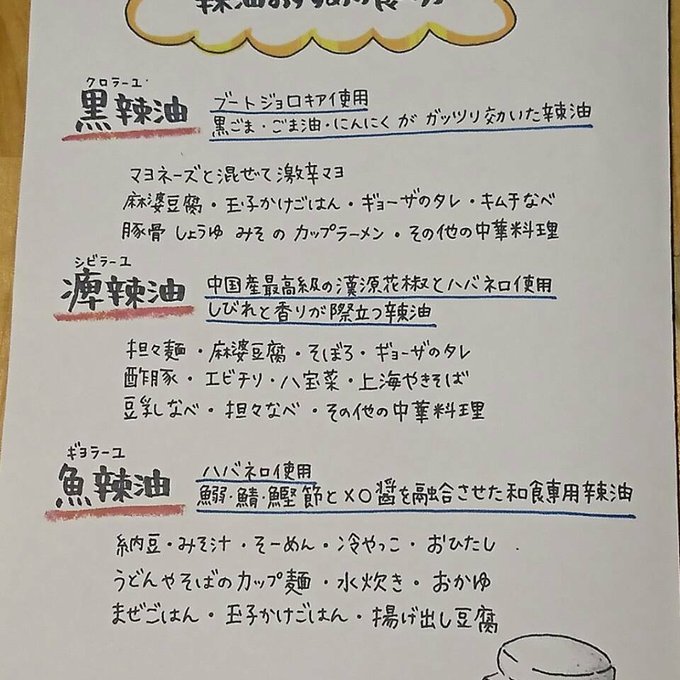 辣油おすすめの食べ方
クロラーユ
黒辣油
ブートジョロキア使用
黒ごま・ごま油・にんにくがガッツリ効いた辣油
マヨネーズと混ぜて激辛マヨ
麻婆豆腐・玉子かけごはん・ギョーザのタレ・キムチなべ
豚骨 しょうゆ みそ の カップラーメン・その他の中華料理
シビラーユ
痺辣油
中国産最高級の漢源花椒とハバネロ使用
しびれと香りが際立つ辣油
担々麺・麻婆豆腐・そぼろ・ギョーザのタレ
酢豚・エビチリ・八宝菜・上海やきそば
豆乳なべ・担々なべ・その他の中華料理
ギョラーユ
魚辣油
ハバネロ使用
鰯・鯖・鰹節とXO醤を融合させた和食専用辣油
納豆・みそ汁・そーめん・冷やっこ・おひたし
うどんやそばのカップ麺・水炊き・おかゆ
まぜごはん・玉子かけごはん・揚げ出し豆腐